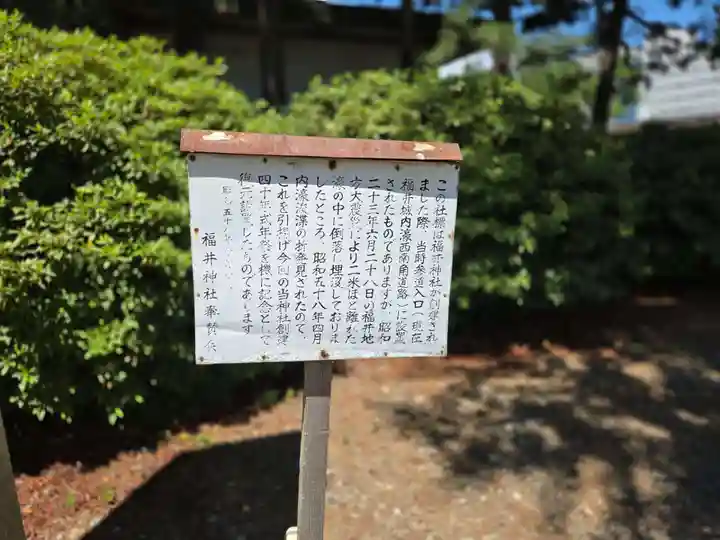 この社標は福井神社が創建され
ました際、当時参道入口(現在
福井城内濠西南角道路)に設置
されたものでありますが、昭和
二十三年六月二十八日の福井地
方大震災により二米ほど離れた
濠の中に倒落し埋没しておりま
したところ、昭和五十八年四月
内濠浚渫の折発見されたので、
これを引揚げ今回の当神社創建
四十年式年祭を機に記念として
復元設置したものであります
昭和五十八年
福井神社奉賛会